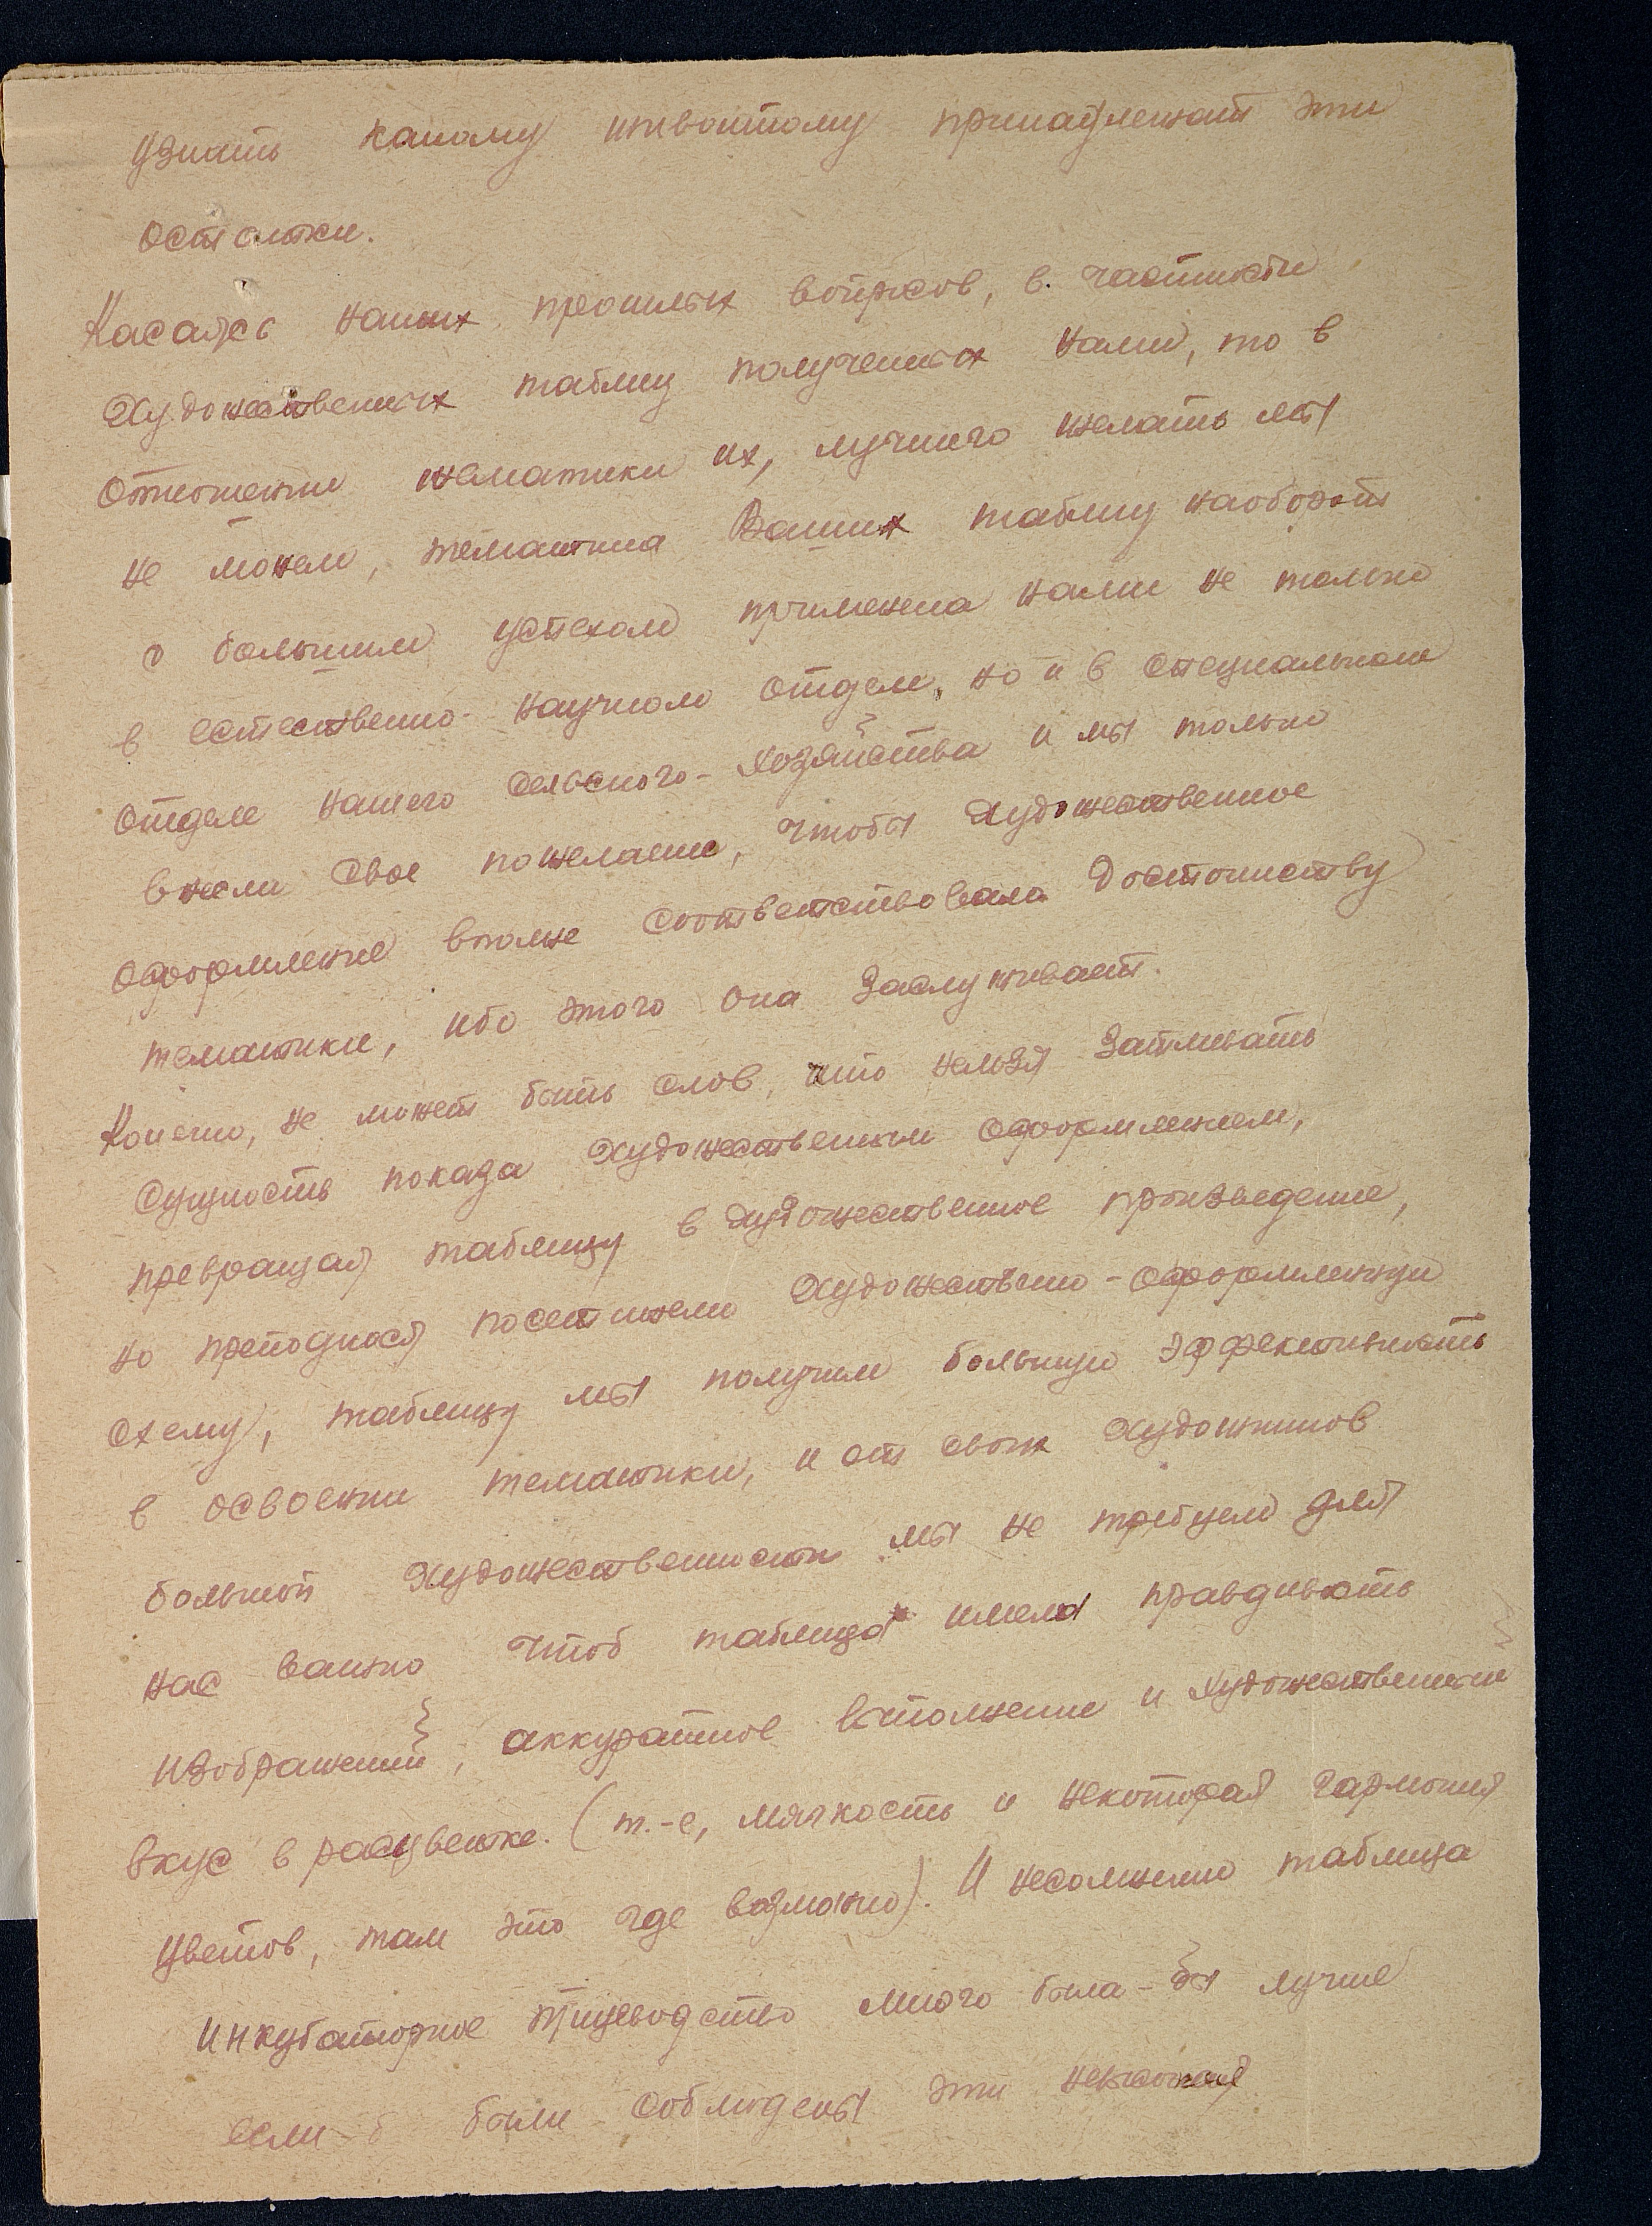 узнать какому животному принадлежат эти
остатки.
Касаясь наших прошлых вопросов, в частности
художественных таблиц полученных нами, то в
отношении тематики их, лучшего желать мы
не можем, тематика Ваших таблиц наоборот
с большим успехом применена нами не только
в естественно-научном отделе, но и в специальном
отделе нашего сельского-хозяйства и мы только
внесли свое пожелание, чтобы художественное
оформление вполне соответствовало достоинству
тематики, ибо этого она заслуживает.
Конечно, не может быть слов, что нельзя затмевать
сущность показа художественным оформлением,
превращая таблицу в художественное произведение,
но преподнося посетителю художественно-оформленную
схему, таблицу мы получим большую эффективность
в освоении тематики, и от своих художников
большой художественности мы не требуем для
нас важно чтоб таблица имела правдивость
изображений, аккуратное выполнение и художественный
вкус в расцветке. (т.-е, мягкость и некоторая гармония
цветов, там это где возможно). И несомненно таблица
инкубаторное птицеводство много была-бы лучше
если-б были соблюдены эти